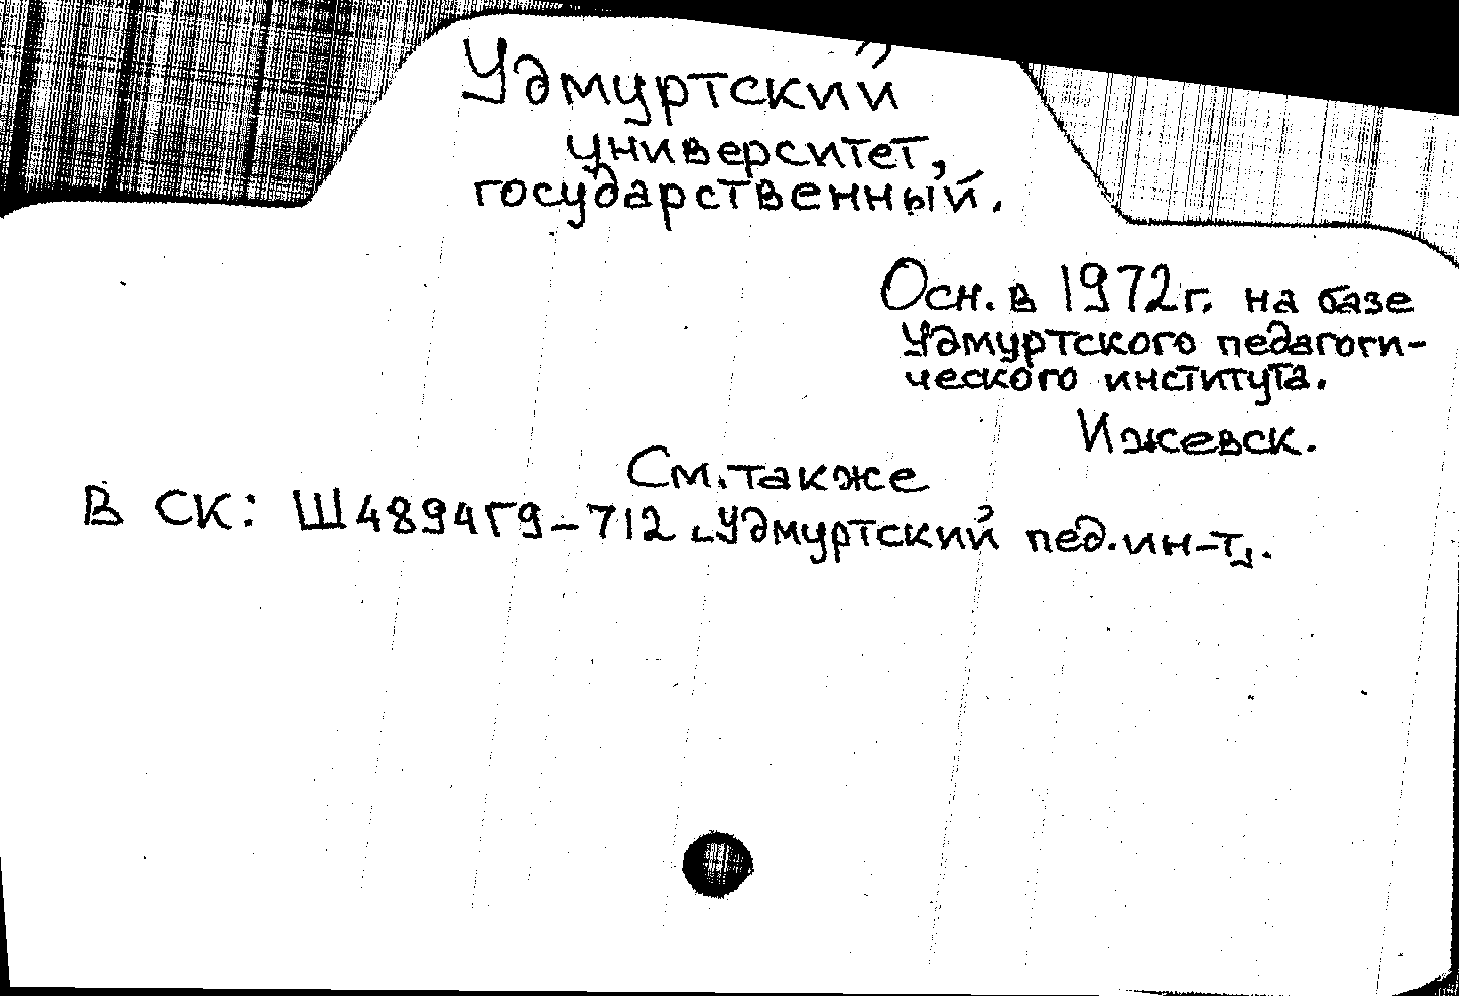 Удмуртский
университет,
государственный.
Осн. в 1972 г. на базе
Удмуртского педагоги-
ческого института.
Ижевск.
См. также
В СК: Ш4894Г9-712 „Удмуртский пед. ин-т".